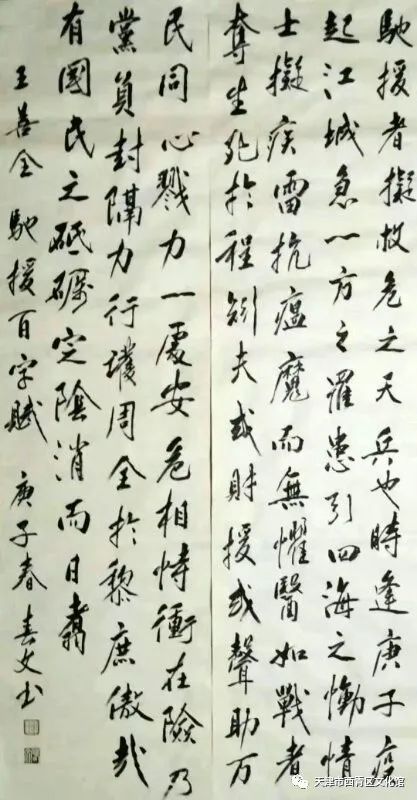 馳援者擬救危之天兵也時逢庚子疫
起江城急一方之罹患引四海之慟情
士擬疾雷抗瘟魔而無懼醫如戰者
奪生死於程剜夫或財援或聲助万
民同心戮力一處安危相恃衝在險乃
黨員封隔力行璞周全於黎庶傲哉
有國民之砥礪定陰消而日翥
王善全 馳援百字賦 庚子春 春文书
天津市西青区文化馆